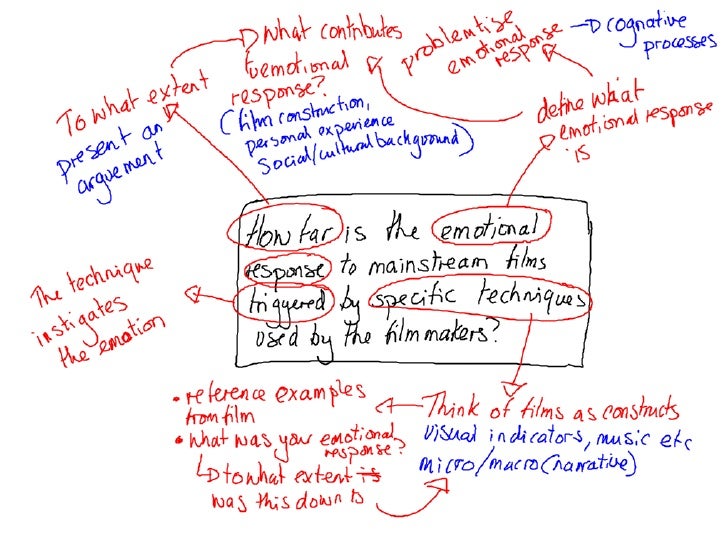 What contributes
emotional
response?
(film construction,
personal experience
social/cultural background)
problemtise
emotional
response
cognative
processes
To what extent
present an
arguement
define what
emotional response
is
How far is the emotional
response to mainstream films
triggered by specific techniques
used by the filmmakers?
The technique
instigates
the emotion
• reference examples
from film
• What was your emotional
response?
to what extent is
was this down to
Think of films as constructs
visual indicators, music etc
micro/macro (narrative)